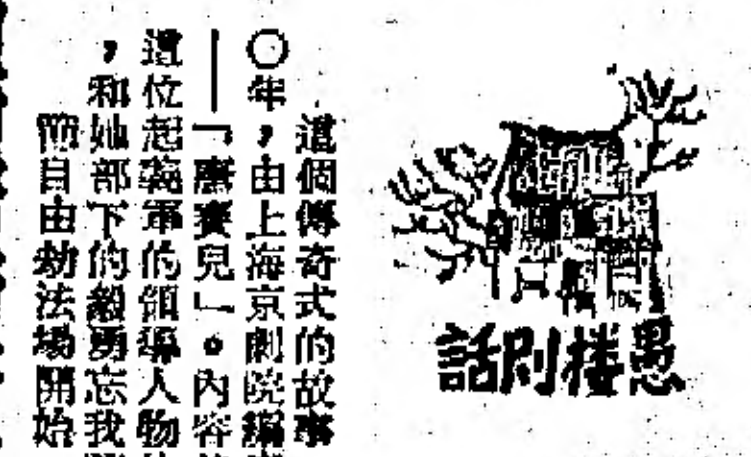 愚樓別話
這個傳奇式的故事
〇年，由上海京劇院編
——「唐賽兒」。內容
這位起義軍的領導人物
，和她部下的毅勇忘我
簡自由劫法場開始